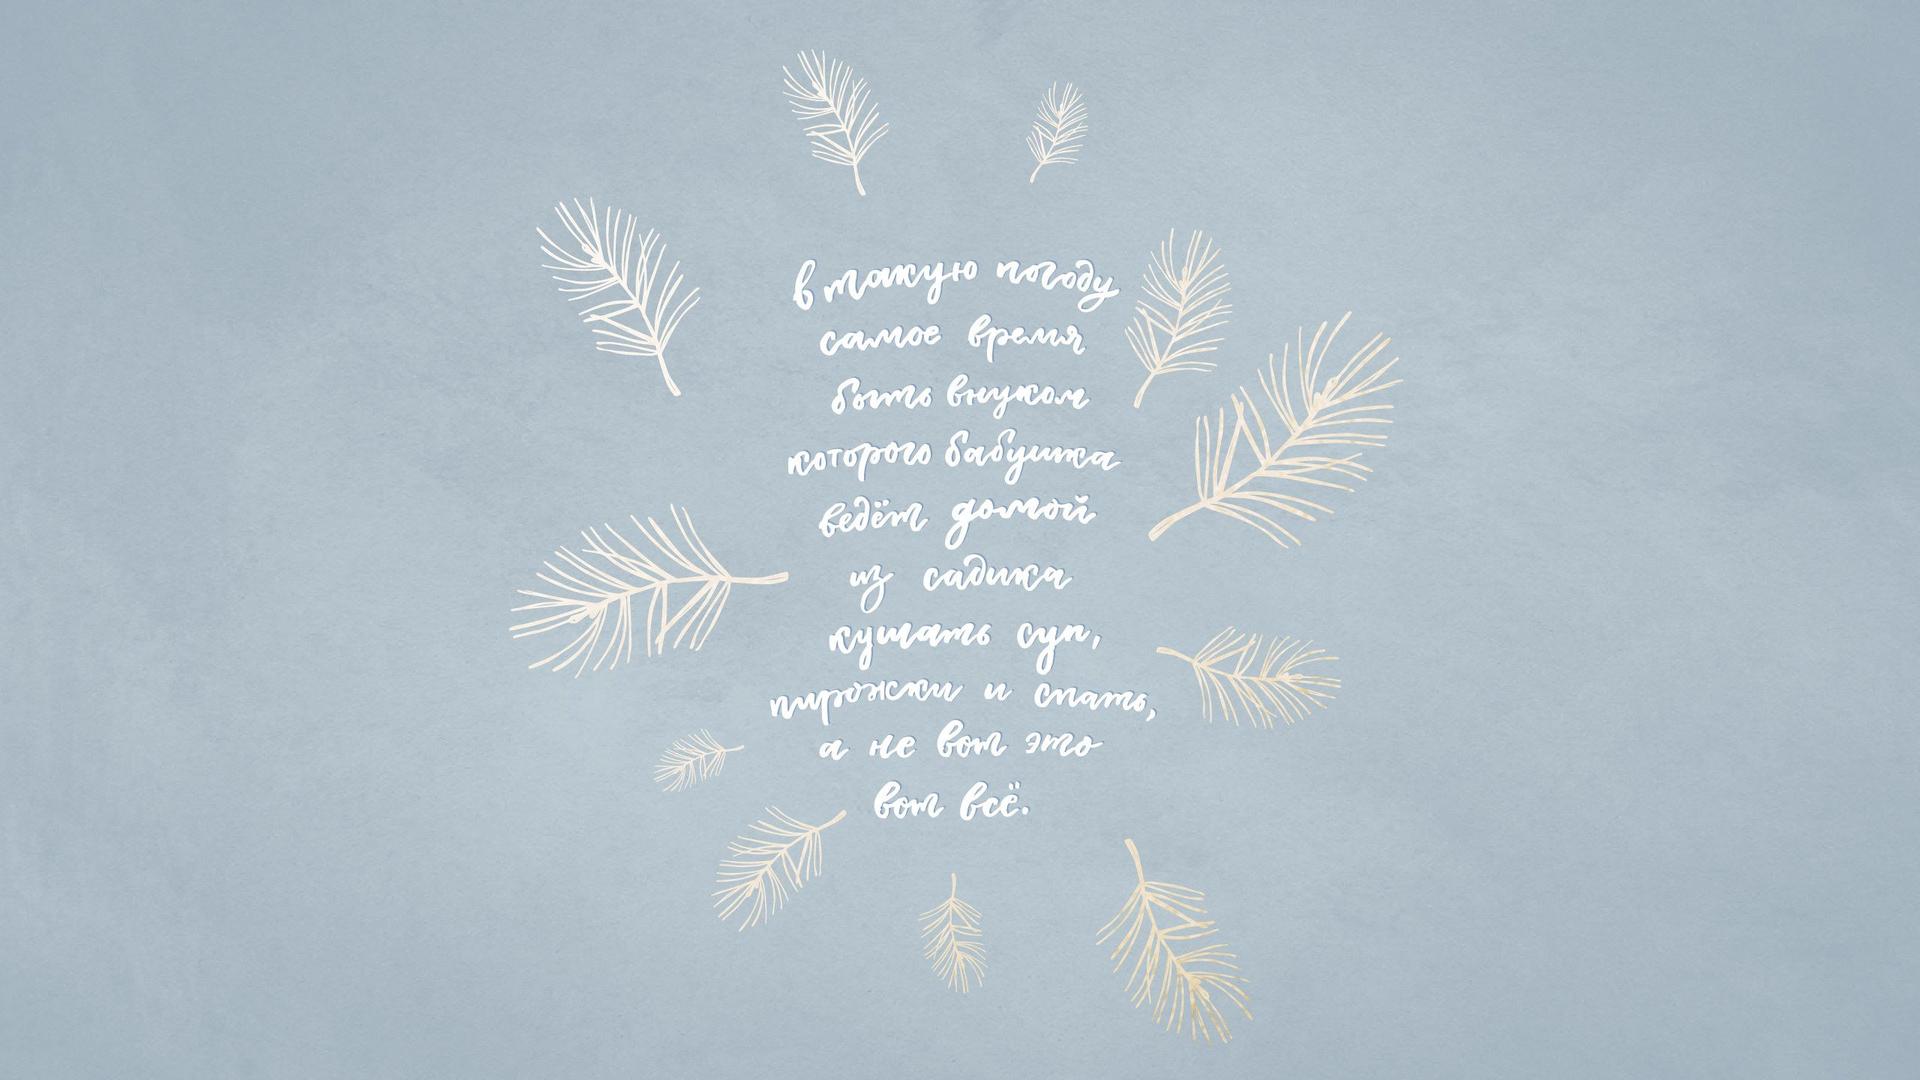 в такую погоду
самое время
быть внуком
которого бабушка
ведёт домой
из садика
кушать суп,
пирожки и спать,
а не вот это
вот всё.